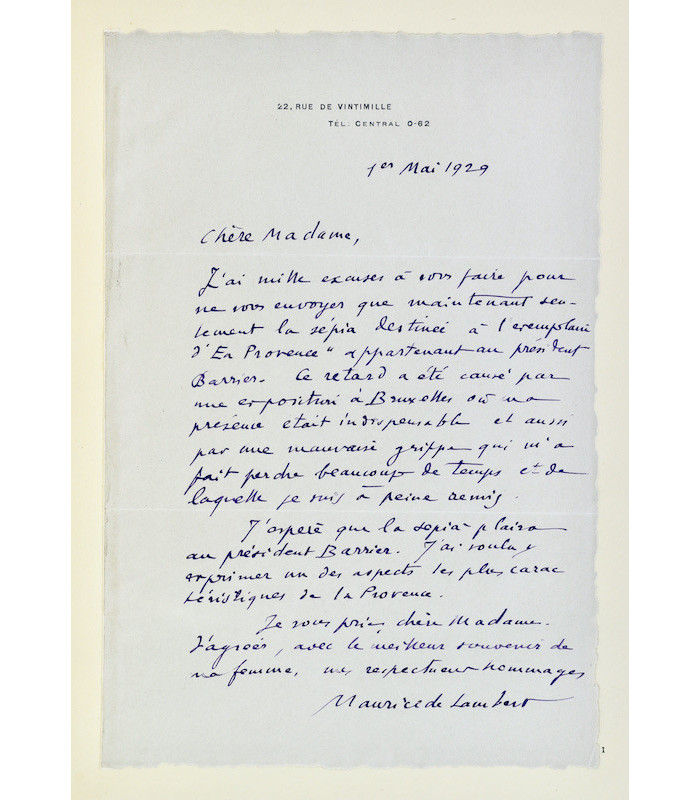 22, RUE DE VINTIMILLE
TÉL: CENTRAL 0-62
1er Mai 1929
Chère Madame,
J'ai mille excuses à vous faire pour
ne vous envoyer que maintenant seu-
lement la sépia destinée à l'exemplaire
d'"En Provence" appartenant au président
Barrier. Ce retard a été causé par
une exposition à Bruxelles où ma
présence était indispensable et aussi
par une mauvaise grippe qui m'a
fait perdre beaucoup de temps et de
laquelle je suis à peine remis.
J'espère que la sépia plaira
au président Barrier. J'ai voulu y
exprimer un des aspects les plus carac
téristiques de la Provence.
Je vous prie, chère Madame.
d'agréer, avec le meilleur souvenir de
ma femme, mes respectueux hommages
Maurice de Lambert
1